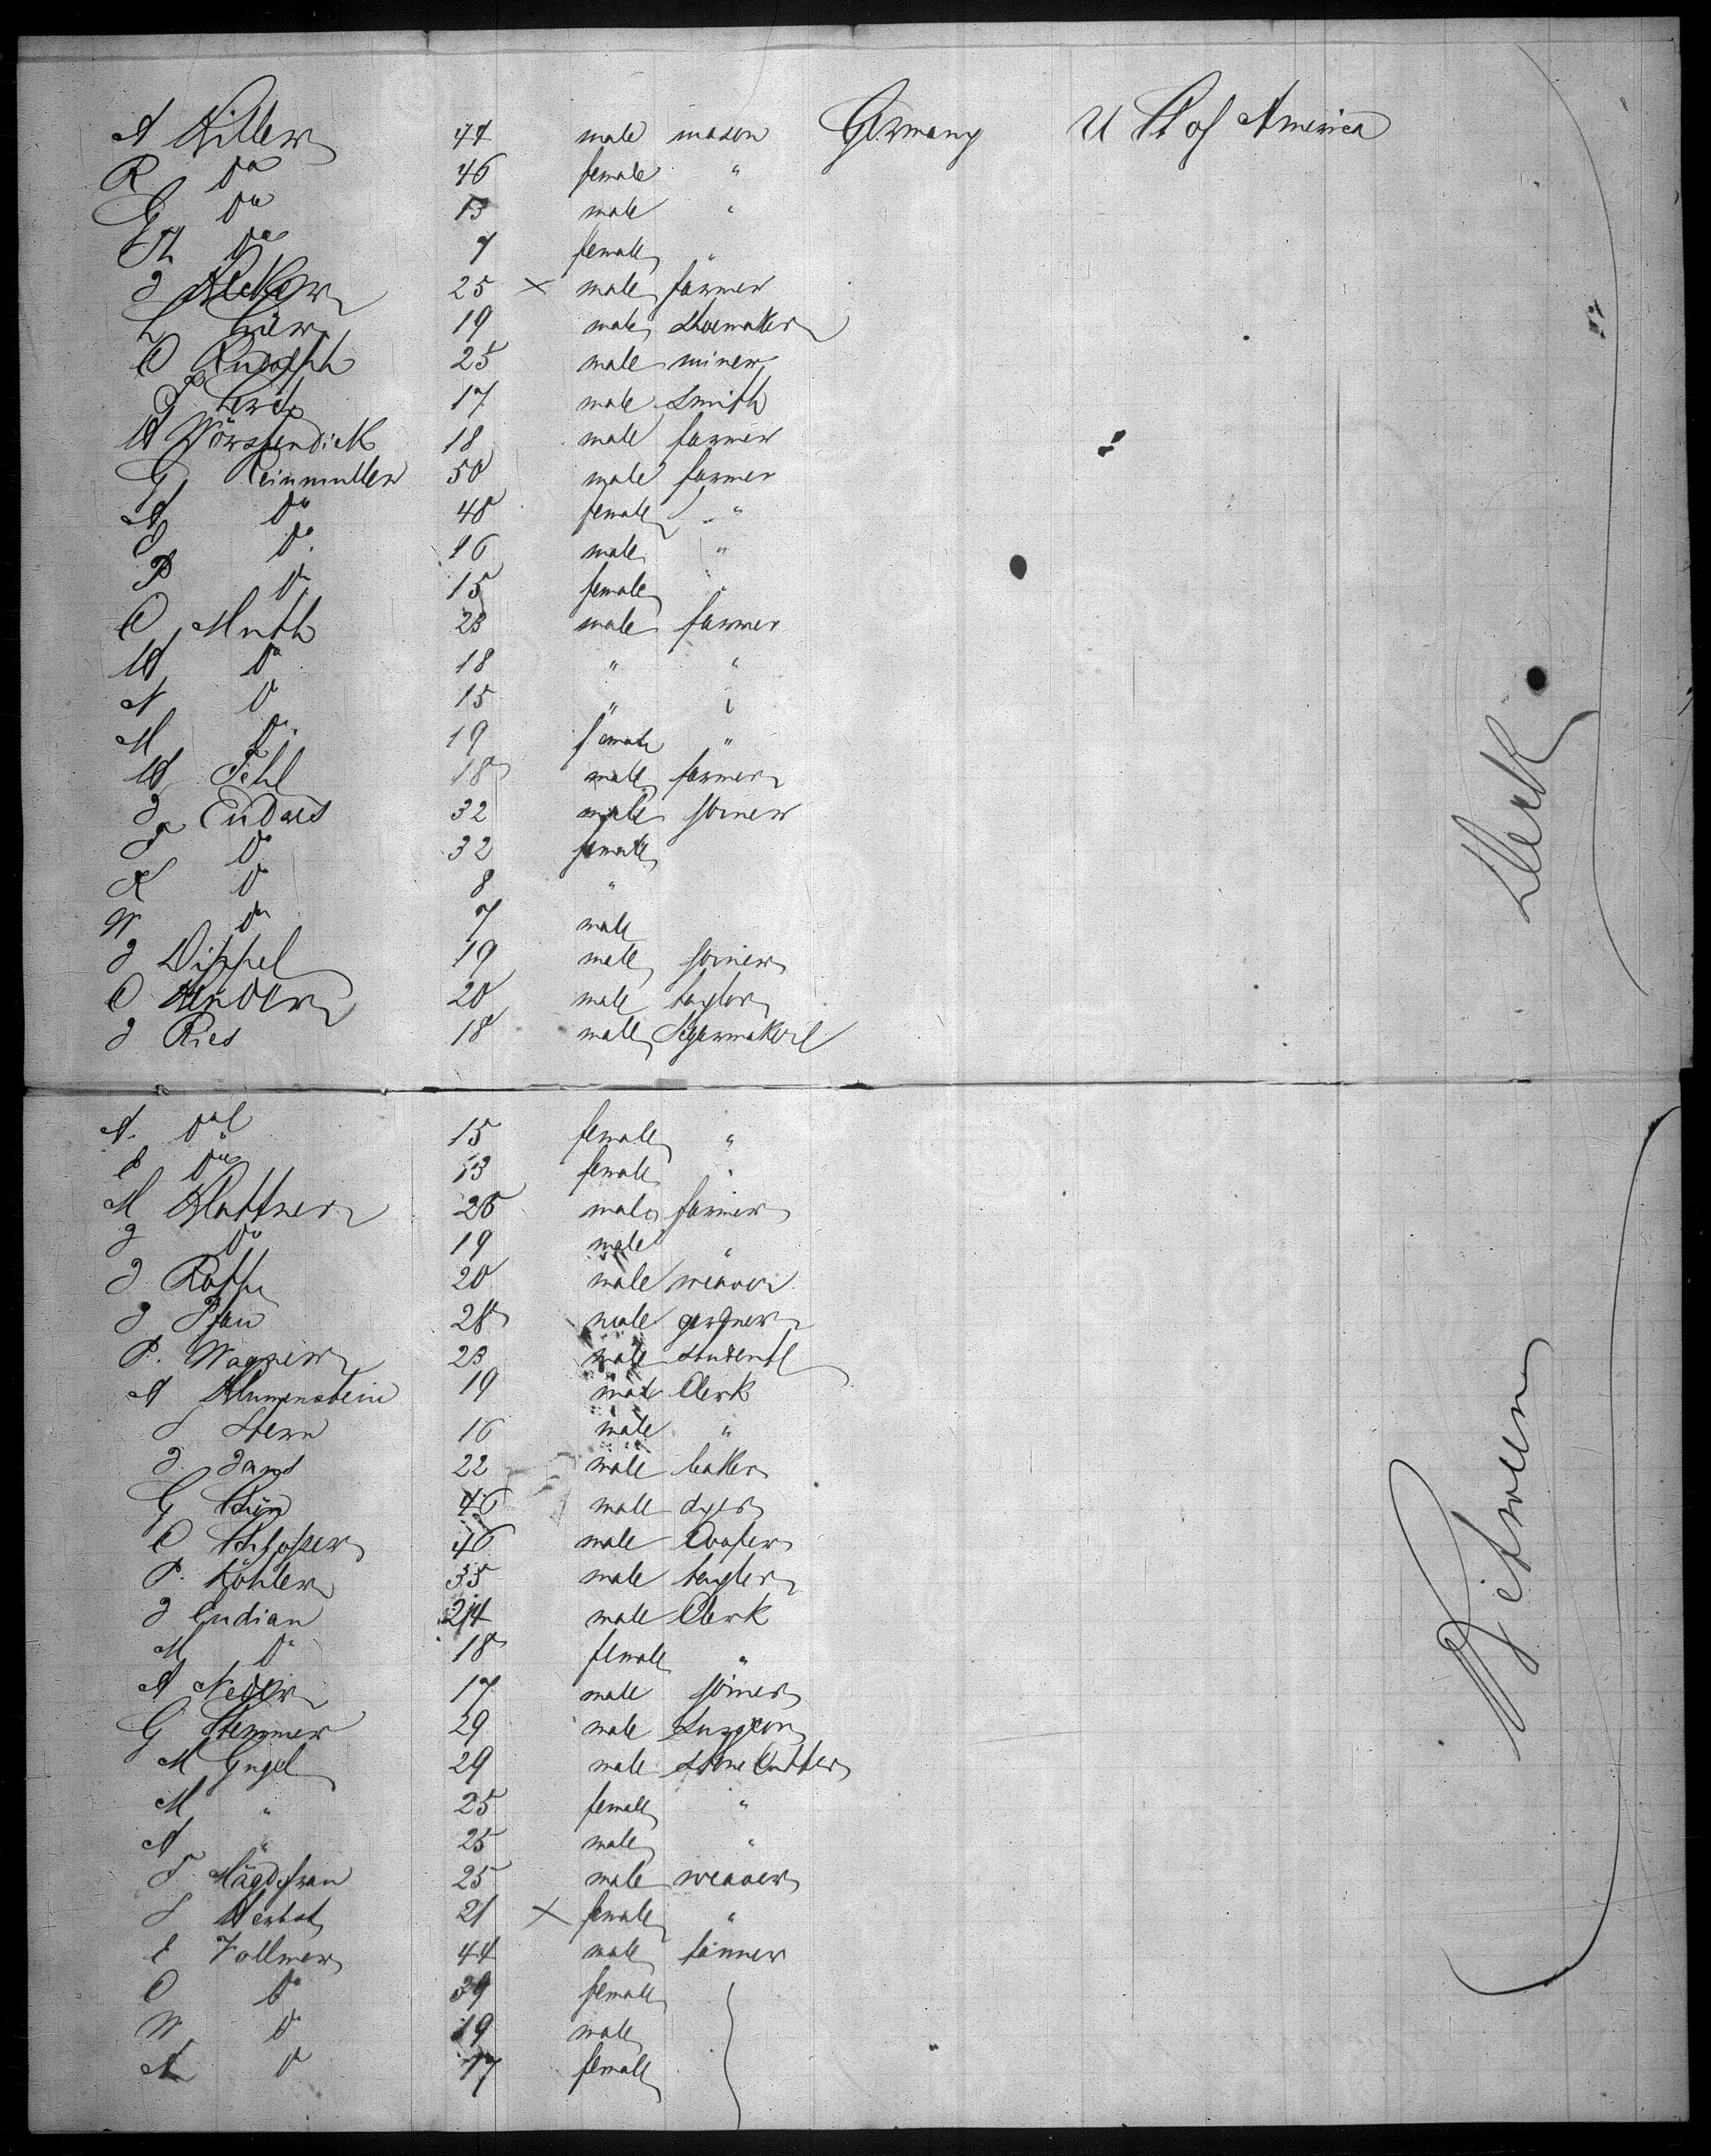 A Hiller 44 male mason Germany U St of America
R do 46 female "
G do 13 male "
Th do 7 female "
J 25 x male farmer
L Löw 19 male Shoemaker
C Rudolph 25 male miner
F Lewis 17 male Smith
W Wörstendick 18 male farmer
G Reinmuller 50 male farmer
A do 48 female "
C do 16 male "
P do 15 female "
C Muth 23 male farmer
W do 18 " "
N do 15 " "
M do 19 female "
W Fehl 18 male farmer
J Endres 32 male joiner
F do 32 female
K do 8 "
W do 7 male
J Dippel 19 male joiner
C 20 male taylor
J Ries 18 male Sigarmaker
A. do 15 female "
E do 13 female "
M Klattner 28 male farmer
J do 19 male "
J Roth 20 male weaver
J Pfau 28 male gardner
P. Wagner 23 male student
A Blumenstein 19 male Clerk
S Stern 16 male "
J. Jans 22 male baker
G 46 male dyer
C Schlosser 46 male Cooper
P. Köhler 35 male taylor
J Endian 24 male Clerk
M do 18 female "
A Neder 17 male joiner
G Stemmer 29 male Surgeon
M Engel 29 male Stone Cutter
M " 25 female "
A " 25 male "
F. Mägdefrau 25 male weaver
S Herbst 21 x female "
E Vollmer 44 male farmer
C do 39 female
W do 19 male
A do 17 female
Between
Deck